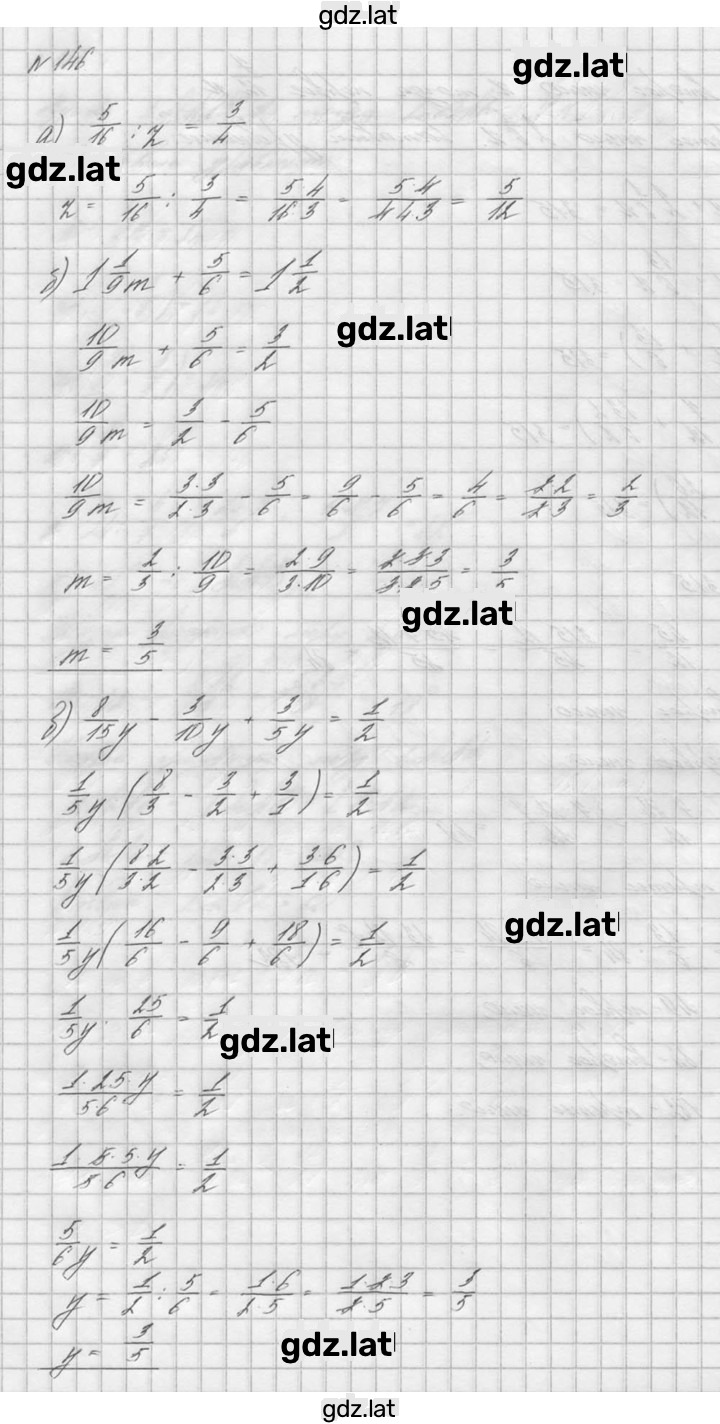 gdz.lat
№ 146
gdz.lat
а) 5/16 : z = 3/4
gdz.lat
z = 5/16 : 3/4 = 5·4/16·3 = 5·4/4·4·3 = 5/12
б) 1 1/9 m + 5/6 = 1 1/2
gdz.lat
10/9 m + 5/6 = 3/2
10/9 m = 3/2 - 5/6
10/9 m = 3·3/2·3 - 5/6 = 9/6 - 5/6 = 4/6 = 2·2/2·3 = 2/3
m = 2/3 : 10/9 = 2·9/3·10 = 2·3·3/3·2·5 = 3/5
gdz.lat
m = 3/5
в) 8/15 y - 3/10 y + 3/5 y = 1/2
1/5 y (8/3 - 3/2 + 3/1) = 1/2
1/5 y (8·2/3·2 - 3·3/2·3 + 3·6/1·6) = 1/2
gdz.lat
1/5 y (16/6 - 9/6 + 18/6) = 1/2
1/5 y · 25/6 = 1/2
gdz.lat
1·25·y/5·6 = 1/2
1·5·5·y/5·6 = 1/2
5/6 y = 1/2
y = 1/2 : 5/6 = 1·6/2·5 = 1·2·3/2·5 = 3/5
y = 3/5
gdz.lat
gdz.lat